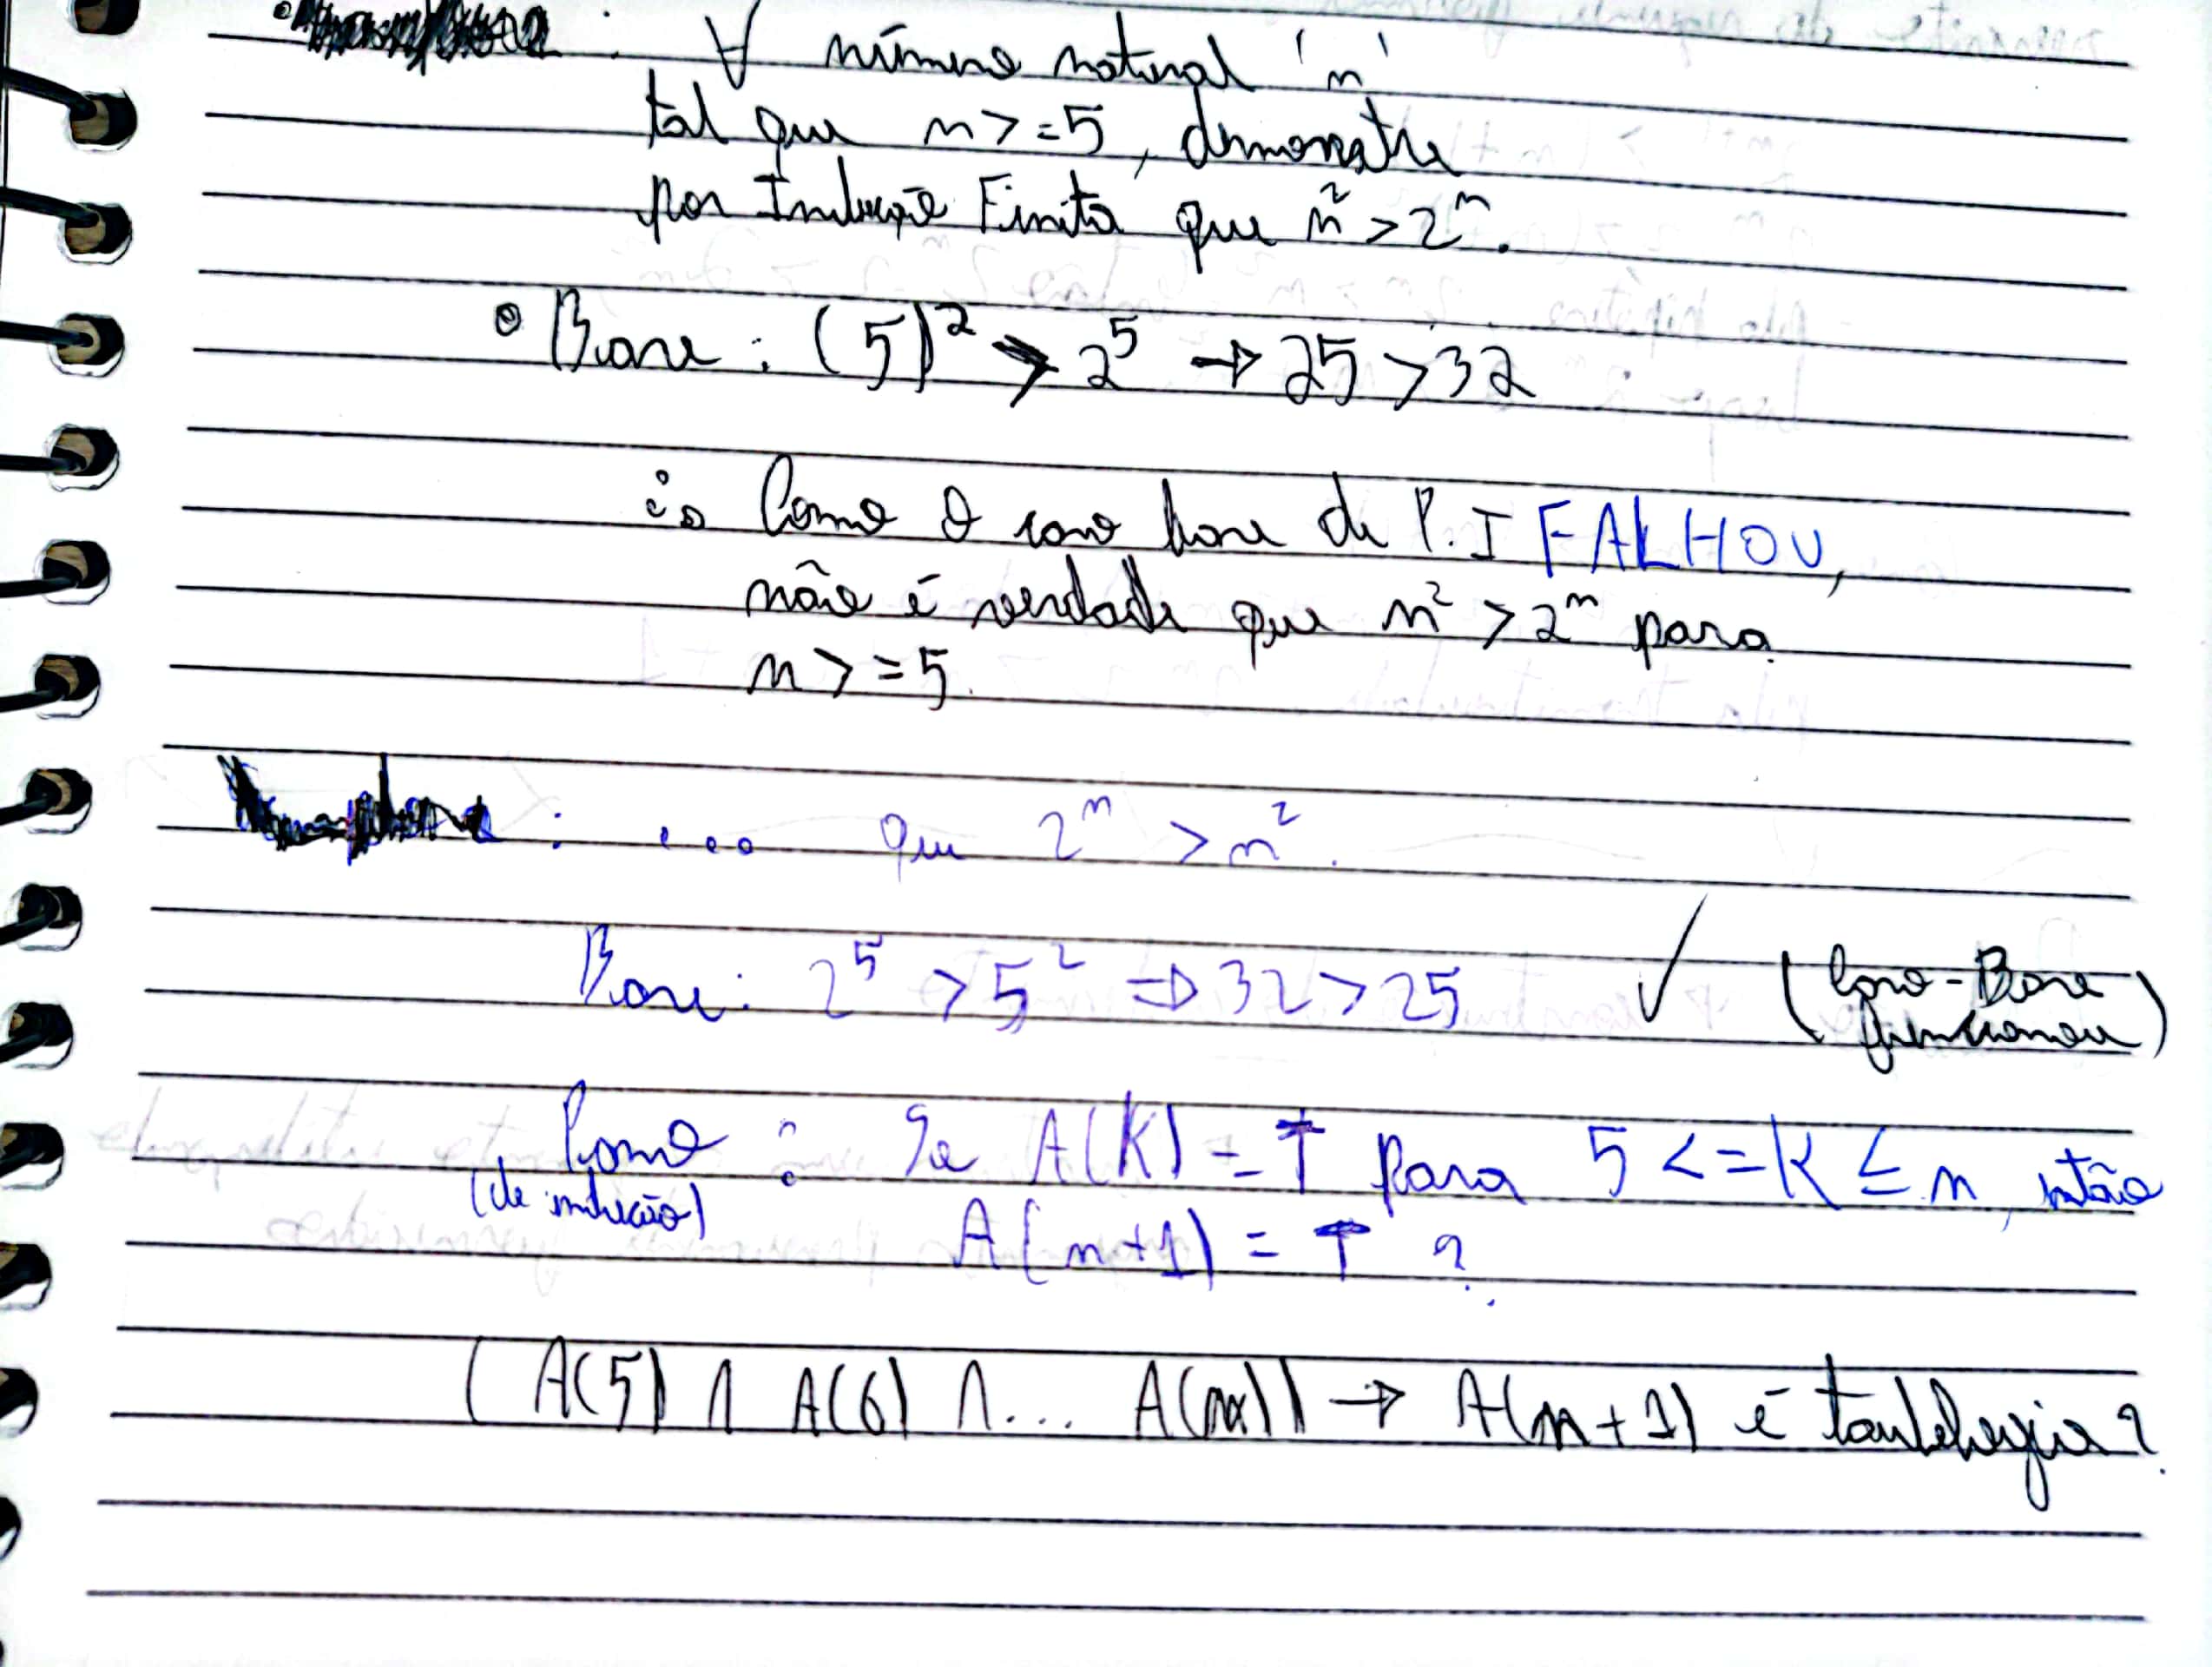 : ∀ número natural 'n'
tal que n >= 5, demonstre
por Indução Finita que n² > 2ⁿ.
Base: (5)² > 2⁵ → 25 > 32
Como o caso base de P.I FALHOU,
não é verdade que n² > 2ⁿ para
n >= 5.
: ... que 2ⁿ > n².
Base: 2⁵ > 5² ⇒ 32 > 25 ✓ (Caso-Base funcionou)
: Se A(K) = T para 5 <= K ≤ n, então
(de indução) A(n+1) = T ?
(A(5) ∧ A(6) ∧ ... A(n)) → A(n+1) é tautologia?